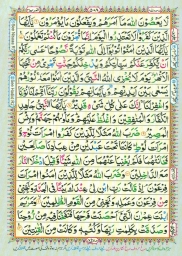 لَا يَعْصُونَ اللهَ مَا أَمَرَهُمْ وَيَفْعَلُونَ مَا يُؤْمَرُونَ يٰأَيُّهَا
الَّذِينَ كَفَرُوا لَا تَعْتَذِرُوا الْيَوْمَ إِنَّمَا تُجْزَوْنَ مَا كُنْتُمْ تَعْمَلُونَ
يٰأَيُّهَا الَّذِينَ آمَنُوا تُوبُوا إِلَى اللهِ تَوْبَةً نَصُوحًا عَسٰى
رَبُّكُمْ أَنْ يُكَفِّرَ عَنْكُمْ سَيِّاٰتِكُمْ وَيُدْخِلَكُمْ جَنّٰتٍ تَجْرِي مِنْ تَحْتِهَا
الْأَنْهٰرُ يَوْمَ لَا يُخْزِي اللهُ النَّبِيَّ وَالَّذِينَ آمَنُوا مَعَهُ نُورُهُمْ
يَسْعٰى بَيْنَ أَيْدِيهِمْ وَبِأَيْمَانِهِمْ يَقُولُونَ رَبَّنَا أَتْمِمْ لَنَا نُورَنَا
وَاغْفِرْ لَنَا إِنَّكَ عَلٰى كُلِّ شَيْءٍ قَدِيرٌ يٰأَيُّهَا النَّبِيُّ جَاهِدِ
الْكُفَّارَ وَالْمُنٰفِقِينَ وَاغْلُظْ عَلَيْهِمْ وَمَأْوٰىهُمْ جَهَنَّمُ وَبِئْسَ
الْمَصِيرُ ضَرَبَ اللهُ مَثَلًا لِلَّذِينَ كَفَرُوا امْرَأَتَ نُوحٍ وَ
امْرَأَتَ لُوطٍ كَانَتَا تَحْتَ عَبْدَيْنِ مِنْ عِبَادِنَا صَالِحَيْنِ
فَخَانَتٰهُمَا فَلَمْ يُغْنِيَا عَنْهُمَا مِنَ اللهِ شَيْئًا وَقِيلَ ادْخُلَا النَّارَ
مَعَ الدّٰخِلِينَ وَضَرَبَ اللهُ مَثَلًا لِلَّذِينَ آمَنُوا امْرَأَتَ
فِرْعَوْنَ إِذْ قَالَتْ رَبِّ ابْنِ لِي عِنْدَكَ بَيْتًا فِي الْجَنَّةِ وَنَجِّنِي
مِنْ فِرْعَوْنَ وَعَمَلِهِ وَنَجِّنِي مِنَ الْقَوْمِ الظّٰلِمِينَ وَمَرْيَمَ
ابْنَتَ عِمْرٰنَ الَّتِي أَحْصَنَتْ فَرْجَهَا فَنَفَخْنَا فِيهِ مِنْ رُوحِنَا
وَصَدَّقَتْ بِكَلِمٰتِ رَبِّهَا وَكُتُبِهِ وَكَانَتْ مِنَ الْقٰنِتِينَ